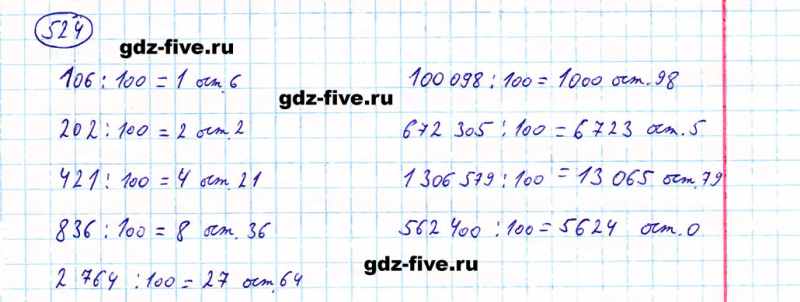 524
gdz-five.ru
106 : 100 = 1 ост. 6
202 : 100 = 2 ост. 2
421 : 100 = 4 ост. 21
836 : 100 = 8 ост. 36
2 764 : 100 = 27 ост. 64
gdz-five.ru
100 098 : 100 = 1000 ост. 98
672 305 : 100 = 6723 ост. 5
1 306 579 : 100 = 13 065 ост. 79
562 400 : 100 = 5624 ост. 0
gdz-five.ru